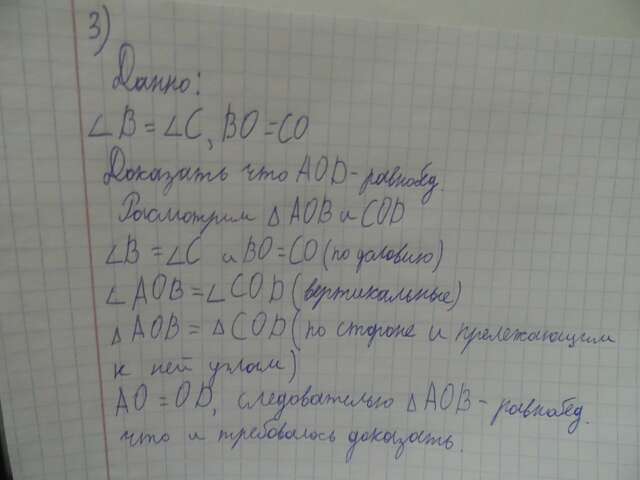 3)
Данно:
∠B = ∠C, BO = CO
Доказать что AOD - равнобед.
Расмотрим △ AOB и COD
∠B = ∠C и BO = CO (по условию)
∠AOB = ∠COD (вертикальные)
△AOB = △COD (по стороне и прележающим
к ней углам)
AO = OD, следовательно △AOB - равнобед.
что и требовалось доказать.